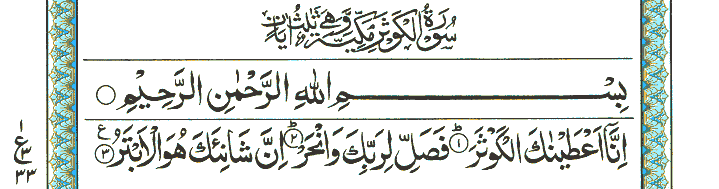 سُوْرَةُ الْكَوْثَرِ مَكِّيَّةٌ وَّهِيَ ثَلٰثُ اٰيَاتٍ
بِسْمِ اللهِ الرَّحْمٰنِ الرَّحِيْمِ ○
اِنَّاۤ اَعْطَيْنٰكَ الْكَوْثَرَ ۱ فَصَلِّ لِرَبِّكَ وَانْحَرْ ۲ اِنَّ شَانِئَكَ هُوَ الْاَبْتَرُ ۳ ع
۱
ع ۳
۳۳